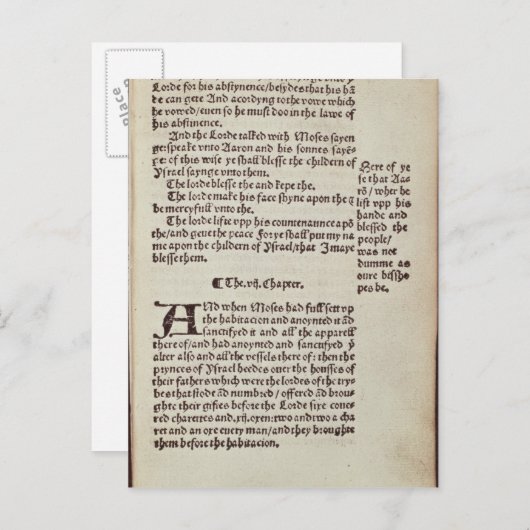 Lorde for his abstynence/besydes that his hā
de can gete And acordyng to the vowe which
he vowed/even so he must doo in the lawe of
his abstinence.
And the Lorde talked with Moses sayen
ge: speake vnto Aaron and his sonnes sayē=
ge: of this wise ye shall blesse the childern of
Ysrael saynge vnto them.
The lorde blesse the and kepe the.
The lorde make his face shyne apon the &
be mercyfull vnto the.
The lorde lifte vpp his countenaunce apō
the/and geve the peace. For ye shall put my na
me apon the childern of Ysrael/that J maye
blesse them.
Here of ye
se that Aa-
rō/ wher he
lift vpp his
hande and
blessed the
people/
was not
dumme as
oure bissho
pes be.
¶ The .vij. Chapter.
AND when Moses had full sett vp
the habitacion and anoynted it ād
sanctifyed it and all the apparell
there of/and had anoynted and sanctifyed yͤ
alter also and all the vessels there of: then the
prynces of Ysrael heedes over the housses of
their fathers which were the lordes of the try-
bes that stode and numbred/ offered ād brou-
ghte their giftes before the Lorde sixe cove-
red charettes and .xij. oxen: two and two a cha
ret and an oxe every man/and they broughte
them before the habitacion.
place